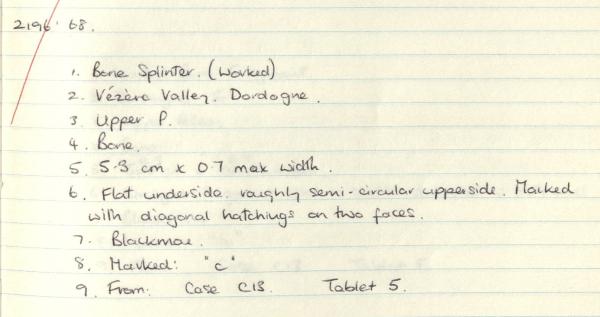 2196' 68.
1. Bone Splinter. (Worked)
2. Vézère Valley. Dordogne.
3. Upper P.
4. Bone.
5. 5.3 cm x 0.7 max width.
6. Flat underside, roughly semi-circular upperside. Marked
with diagonal hatchings on two faces.
7. Blackmore.
8. Marked: "c"
9. From: Case C13. Tablet 5.